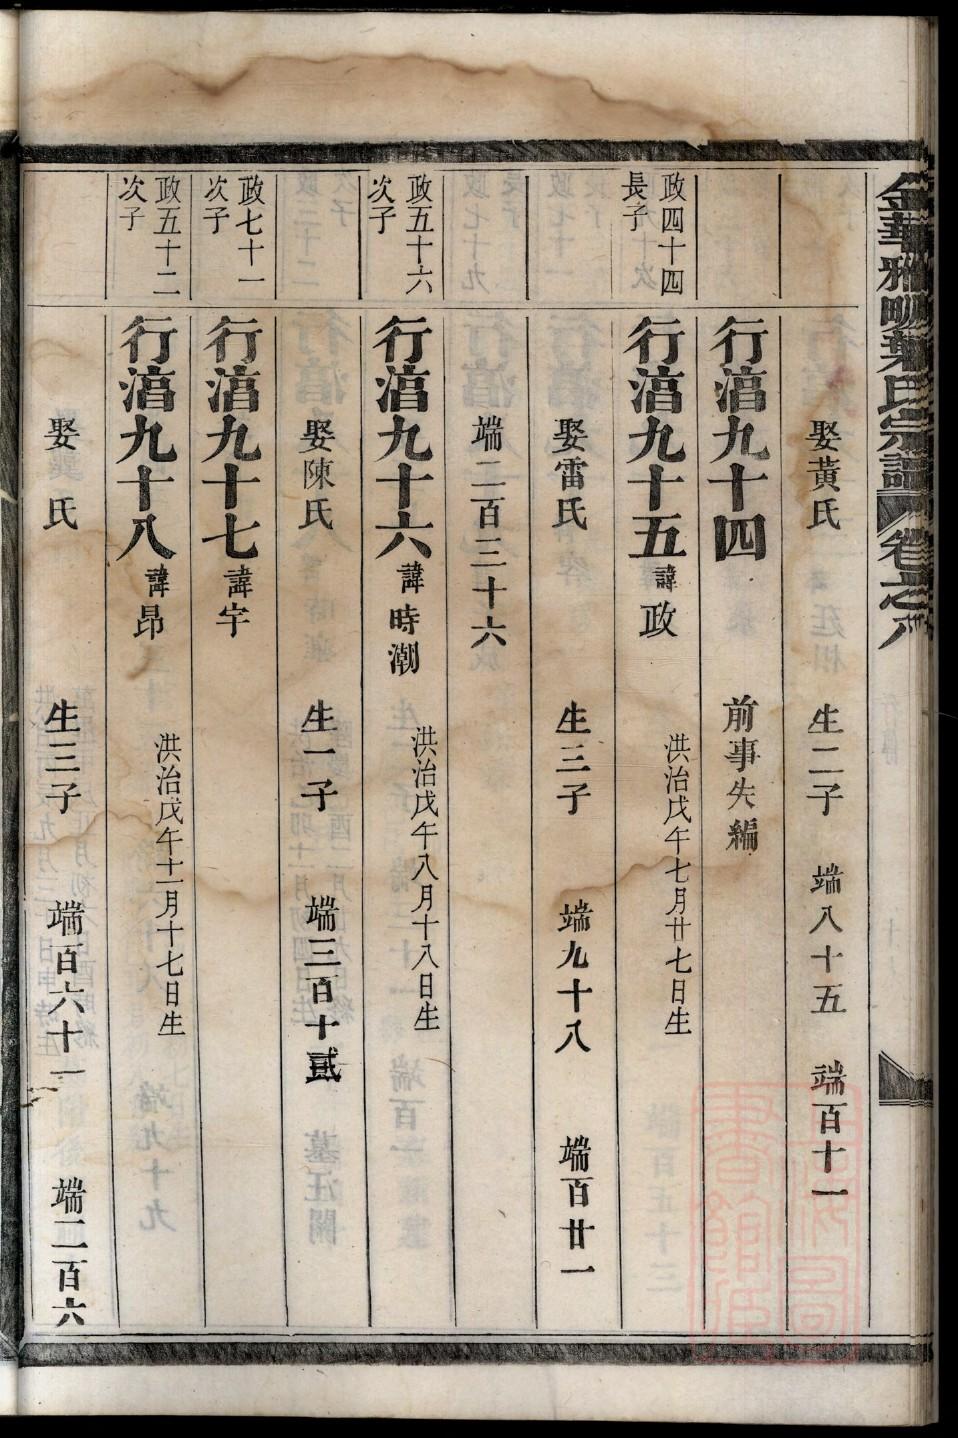 金華雅畈葉氏宗譜 卷之八
娶黃氏 生二子 端八十五 端百十一
行湻九十四 前事失編
政四十四
長子
行湻九十五 諱政 洪治戊午七月廿七日生
娶雷氏 生三子 端九十八 端百廿一
端二百三十六
政五十六
次子
行湻九十六 諱時潮 洪治戊午八月十八日生
娶陳氏 生一子 端三百十貳
政七十一
次子
行湻九十七 諱宇
政五十二
次子
行湻九十八 諱昂 洪治戊午十一月十七日生
娶 氏 生三子 端百六十一 端二百六